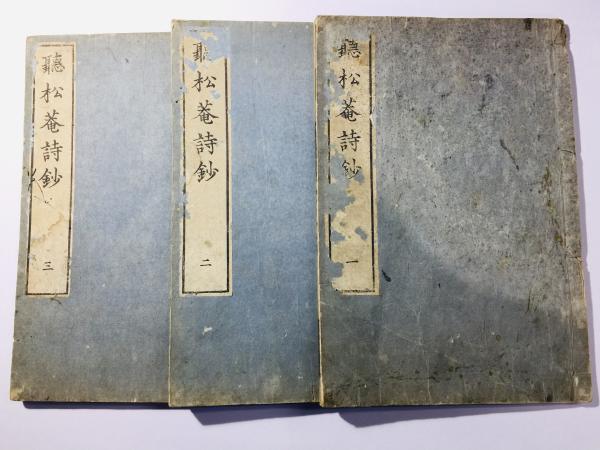 聽松菴詩鈔 一
聽松菴詩鈔 二
聽松菴詩鈔 三